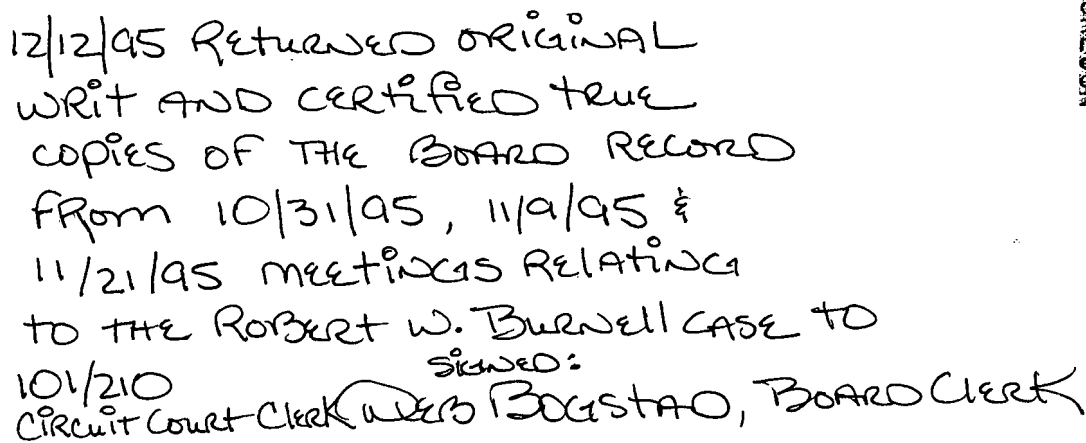 12/12/95 Returned original
writ and certified true
copies of the Board Record
from 10/31/95, 11/9/95 &
11/21/95 meetings relating
to the Robert W. Burnell case to
101/210
Circuit Court Clerk
Signed:
Deb Bogstad, Board Clerk